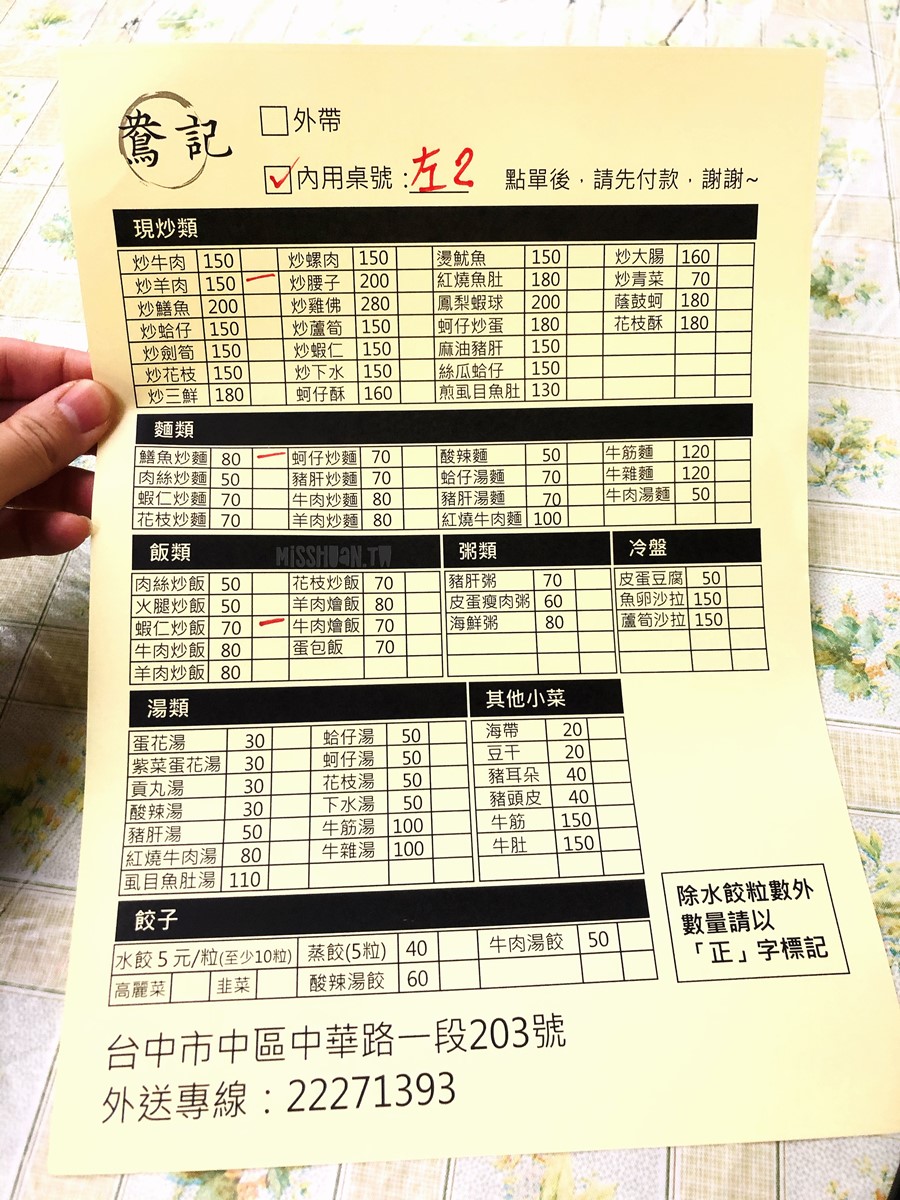 鴦記
□外帶
☑內用桌號：左2 點單後，請先付款，謝謝~
現炒類
炒牛肉 150 炒螺肉 150 燙魷魚 150 炒大腸 160
炒羊肉 150 一 炒腰子 200 紅燒魚肚 180 炒青菜 70
炒鱔魚 200 炒雞佛 280 鳳梨蝦球 200 蔭鼓蚵 180
炒蛤仔 150 炒蘆筍 150 蚵仔炒蛋 180 花枝酥 180
炒劍筍 150 炒蝦仁 150 麻油豬肝 150
炒花枝 150 炒下水 150 絲瓜蛤仔 150
炒三鮮 180 蚵仔酥 160 煎虱目魚肚 130
麵類
鱔魚炒麵 80 一 蚵仔炒麵 70 酸辣麵 50 牛筋麵 120
肉絲炒麵 50 豬肝炒麵 70 蛤仔湯麵 70 牛雜麵 120
蝦仁炒麵 70 牛肉炒麵 80 豬肝湯麵 70 牛肉湯麵 50
花枝炒麵 70 羊肉炒麵 80 紅燒牛肉麵 100
飯類 MISSHUAN.TW 粥類 冷盤
肉絲炒飯 50 花枝炒飯 70 豬肝粥 70 皮蛋豆腐 50
火腿炒飯 50 羊肉燴飯 80 皮蛋瘦肉粥 60 魚卵沙拉 150
蝦仁炒飯 70 一 牛肉燴飯 70 海鮮粥 80 蘆筍沙拉 150
牛肉炒飯 80 蛋包飯 70
羊肉炒飯 80
湯類 其他小菜
蛋花湯 30 蛤仔湯 50 海帶 20
紫菜蛋花湯 30 蚵仔湯 50 豆干 20
貢丸湯 30 花枝湯 50 豬耳朵 40
酸辣湯 30 下水湯 50 豬頭皮 40
豬肝湯 50 牛筋湯 100 牛筋 150
紅燒牛肉湯 80 牛雜湯 100 牛肚 150
虱目魚肚湯 110
餃子
水餃5元/粒(至少10粒) 蒸餃(5粒) 40 牛肉湯餃 50
高麗菜 韭菜 酸辣湯餃 60
除水餃粒數外
數量請以
「正」字標記
台中市中區中華路一段203號
外送專線：22271393